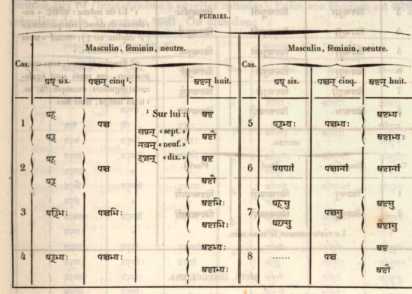 PLURIEL.
Masculin, féminin, neutre.
Masculin, féminin, neutre.
Cas.
षष् six.
पञ्चन् cinq ¹.
अष्टन् huit.
Cas.
षष् six.
पञ्चन् cinq.
अष्टन् huit.
1
षट्
षड्
पञ्च
अष्ट
अष्टौ
2
षट्
षड्
पञ्च
अष्ट
अष्टौ
3
षड्भिः
पञ्चभिः
अष्टभिः
अष्टाभिः
4
षड्भ्यः
पञ्चभ्यः
अष्टभ्यः
अष्टाभ्यः
¹ Sur lui :
सप्तन् « sept. »
नवन् « neuf. »
दशन् « dix. »
5
षड्भ्यः
पञ्चभ्यः
अष्टभ्यः
अष्टाभ्यः
6
षण्णां
पञ्चानां
अष्टानां
7
षट्सु
पञ्चसु
अष्टसु
अष्टासु
8
......
पञ्च
अष्ट
अष्टौ